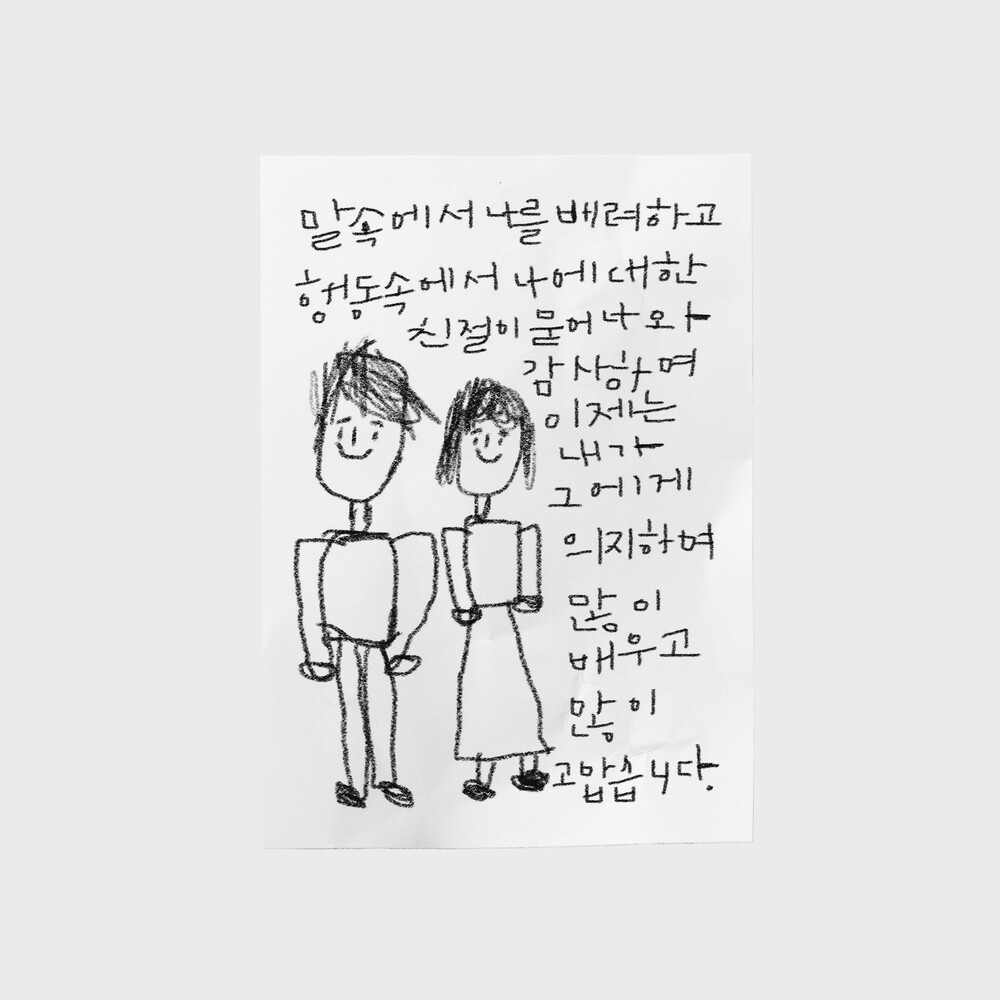 말속에서 나를 배려하고
행동속에서 나에 대한
친절이 묻어나와
감사하며
이제는
내가
그에게
의지하며
많이
배우고
많이
고맙습니다.